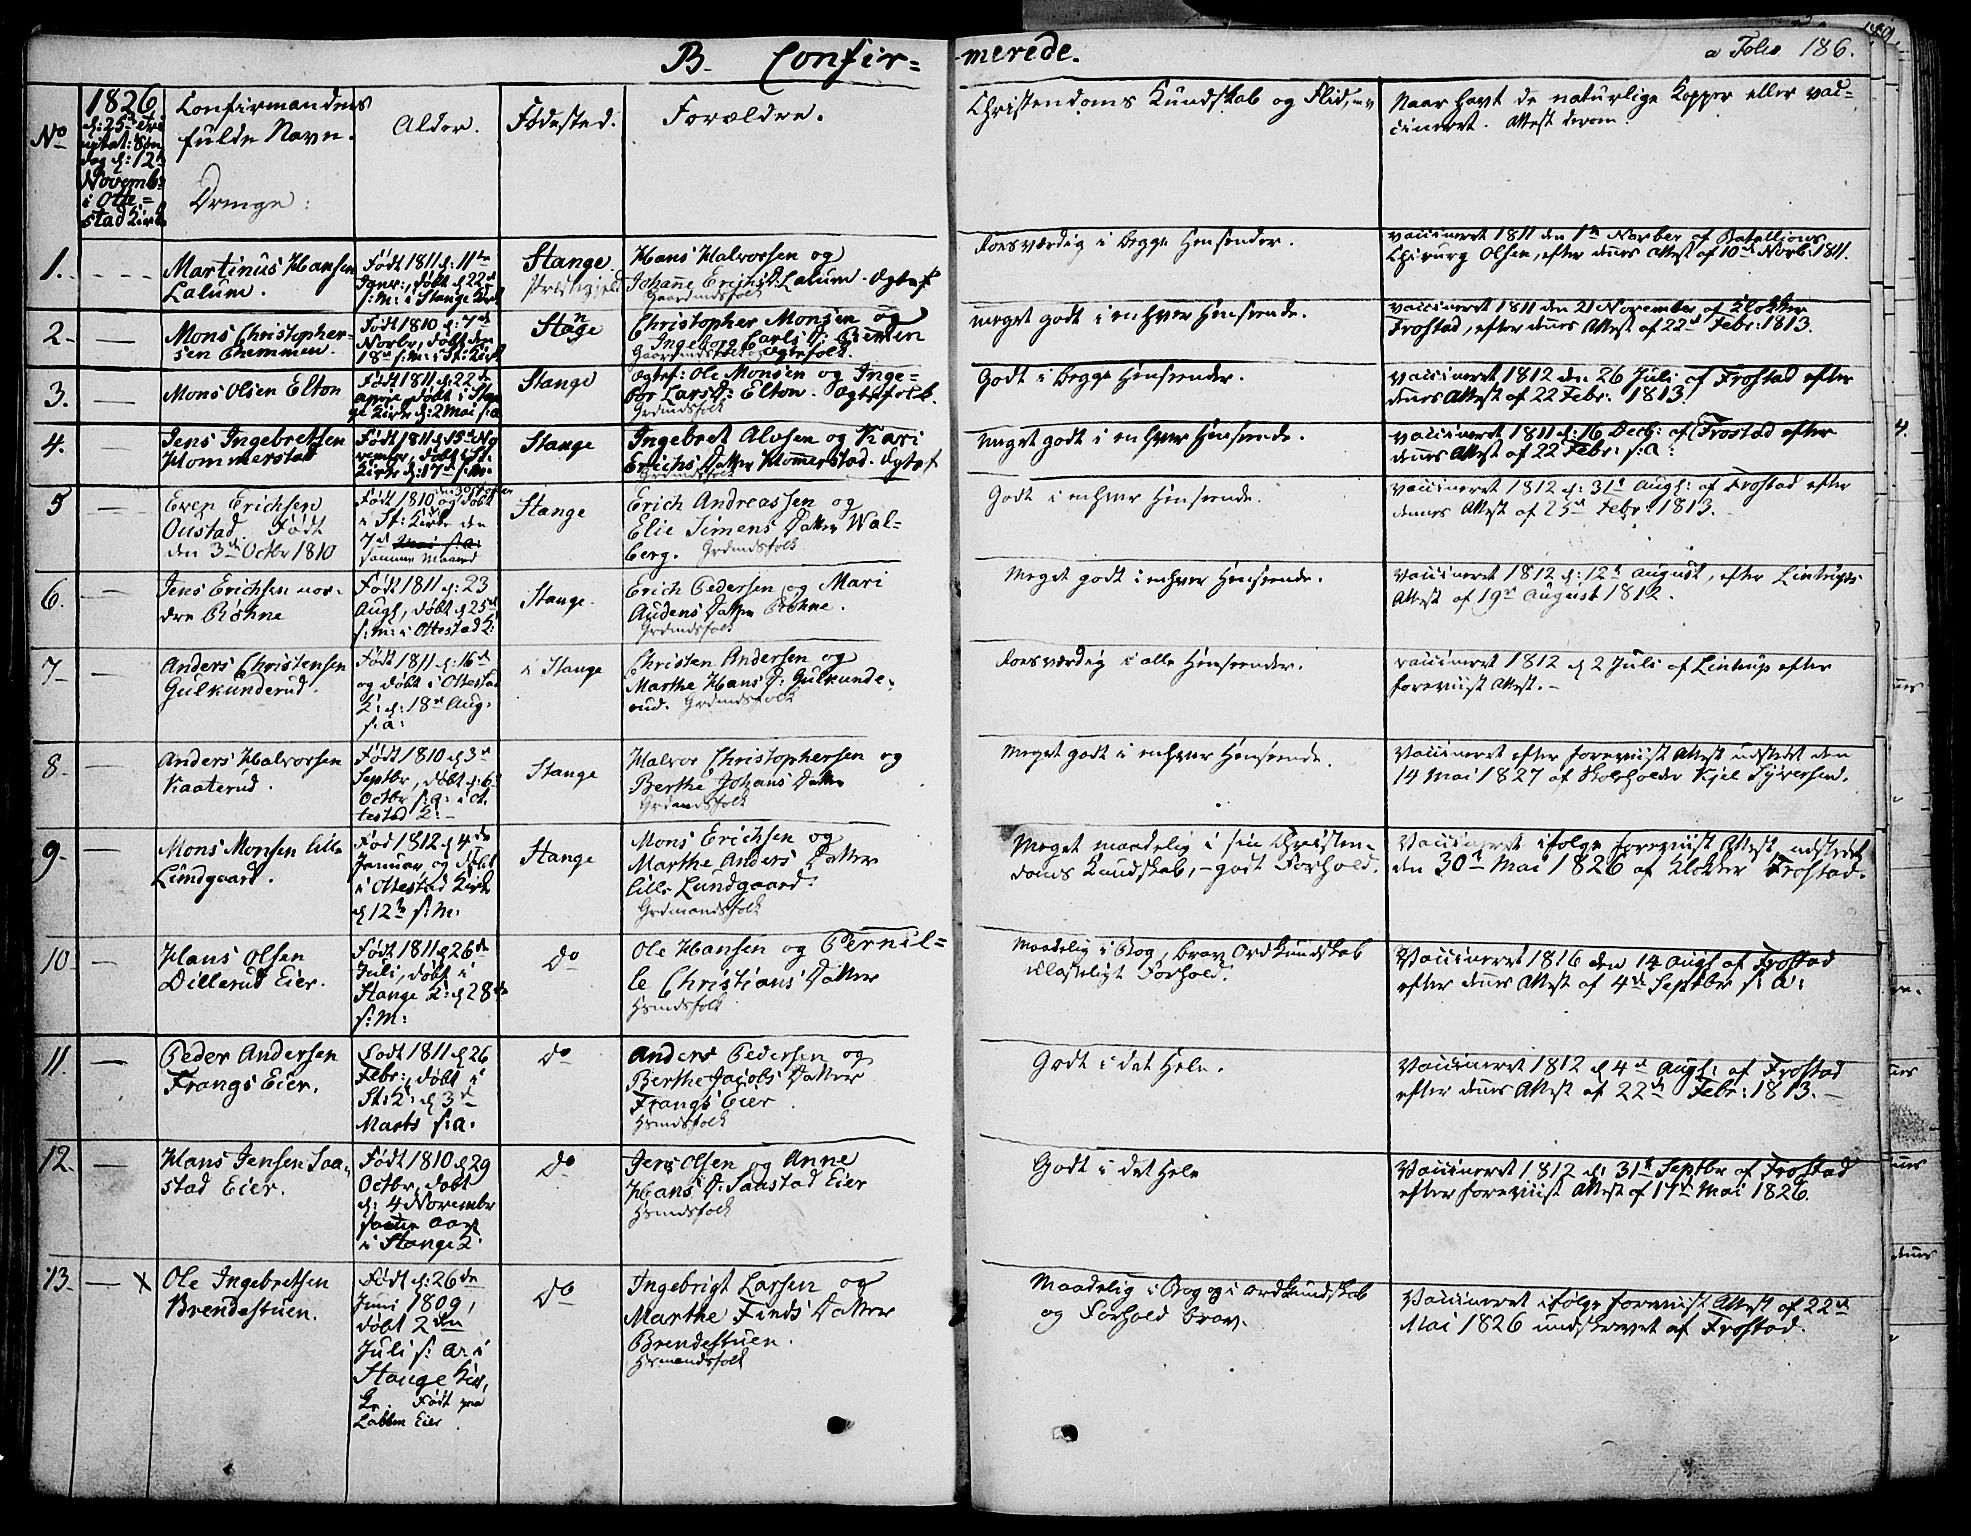 B. Confir= merede.
a Folio 186.
No
1826
d: 25de Tri
nitat: Søn
dag d: 12te
Novemb=
i Otte=
stad Kirke
Confirmandens
fulde Navn.
Drenge:
Alder.
Fødested.
Forældre.
Christendoms Kundskab og Flid
Naar havt de naturlige Kopper eller vac=
cineret. Attest derom
1.
Martinus Hansen
Lalum.
Født 1811 d: 11te
døbt d 22de
s: M: i Stange Kirke
Stange
Præstegjeld
Hans Halvorsen og
Johanne Erichs D. Lalum. Ægtef
Gaardmdsfolk
Roesværdig i begge Henseender.
vaccineret 1811 den 1te Novber af Batallions
Chirurg Olsen, efter dennes Attest af 10de Novb. 1811.
2.
Mons Christopher=
sen Chemmen.
Født 1810 d: 7de
Novbr, døbt den
18de s: m: i St: Kirke
Stange
Christopher Monsen og
Ingeborg Carls D:
Gaardmdsfolk og Ægtefolk.
meget godt i enhver Henseende.
vaccineret 1811 den 21 November af Klokker
Frostad, efter dennes Attest af 22de Febr: 1813.
3.
Mons Olsen Elton
Født 1811 d: 22de
April døbt i Stan
ge Kirke d: 2 Mai s: a
Stange
Ægtef: Ole Monsen og Inge=
bor Lars D: Elton. Ægtefolk.
Grdmdsfolk
Godt i begge Henseender.
vaccineret 1812 den 26 Juli af Frostad efter
dennes Attest af 22 Febr. 1813.
4.
Jens Ingebretsen
Hommerstad
Født 1811 d 15de No
vember, døbt i St.
Kirke d: 17de s: M:
Stange
Ingebret Alvsen og Kari
Erichs Datter Hommerstad. Ægtef
Grdmdsfolk
Meget godt i enhver Henseende.
vaccineret 1811 d: 16 Decb: af Frostad efter
dennes Attest af 22 Febr: s: a:
5
Even Erichsen
Oustad Født
den 3de Octbr 1810
Født 1810 og døbt
i St: Kirke den
7de Mai s: a:
samme Maaned
Stange
Erich Andreassen og
Elie Simens Datter Wal=
berg. Grdmdsfolk
Godt i enhver Henseende.
vaccineret 1812 d: 31te Augs: af Frostad efter
dennes Attest af 25de Febr: 1813.
6.
Jens Erichsen nor=
dre Røhne
Født 1811 d: 23
Augs, døbt d 25de
s: m: i Ottestad K:
Stange.
Erich Pedersen og Mari
Audens Datter Røhne.
Grdmdsfolk
Meget godt i enhver Henseende.
vaccineret 1812 d: 12te August, efter Lintrups
Attest af 19de August 1812.
7
Anders Christensen
Gulkunderud.
Født 1811 d: 16de
og døbt i Ottestad
K: d: 18de Aug:
s: a:
i Stange
Christen Andersen og
Marthe Hans D: Gulkunde=
rud. Grdmdsfolk
Roesværdig i alle Henseender.
vaccineret 1812 d 2 Juli af Lintrup efter
foreviist Attest.
8
Anders Halvorsen
Kaaterud.
Født 1810 d 3de
Septbr, døbt d: 6te
Octbr s: a: i Ot
testad K:
Stange
Halvor Christophersen og
Berthe Johans Datter
Grdmdsfolk
Meget godt i enhver Henseende.
Vaccineret efter foreviist Attest udstedt den
14 Mai 1827 af Skoleholder Kjel Syversen.
9.
Mons Monsen lille
Lundgaard.
Fød 1812 d 4de
Januar, og døbt
i Ottestad Kirke
d 12te s: M:
Stange
Mons Erichsen og
Marthe Anders Datter
lille Lundgaard.
Grdmandsfolk
Meget maadelig i sin Christen=
doms Kundskab, - godt Forhold.
Vaccineret ifølge foreviist Attest, udstedt
den 30te Mai 1826 af Klokker Frostad.
10
Hans Olsen
Dillerud Eier.
Født 1811 d 26de
Juli, døbt i
Stange K: d 28de
s: M:
Do
Ole Hansen og Pernil=
le Christians Datter
Hsmdsfolk
Maadelig i Bog, brav Ordkundskab
ulasteligt Forhold.
Vaccineret 1816 den 14 Augs af Frostad
efter dennes Attest af 4de Septbr s: a:
11.
Peder Andersen
Frangs Eier.
Født 1811 d 26
Febr:, døbt i
St: K: d 3de
Marts s: a:
Do
Anders Pedersen og
Berthe Jacobs Datter
Frangs Eier
Hsmdsfolk
Godt i det Hele.
Vaccineret 1812 d 4de Augs: af Frostad
efter dennes Attest af 22de Febr: 1813.
12.
Hans Jensen Saa=
stad Eier.
Født 1810 d 29
Octbr, døbt
d: 4 November
samme Aar
i Stange K:
Do
Jens Olsen og Anne
Hans D: Saastad Eier
Hsmdsfolk
Godt i det Hele
Vaccineret 1812 d: 31te Septbr af Frostad
efter foreviist Attest af 17de Mai 1826.
13.
X
Ole Ingebretsen
Brendestuen.
Født d: 26de
Juni 1809,
døbt 2den
Juli s: Ar i
Stange Kir,
ke. Født paa
Labben Eier
Do
Ingebrigt Larsen og
Marthe Finds Datter
Brendestuen.
Hsmandsfolk
Maadelig i Bog og i Ordkundskab
og Forhold brav.
Vaccineret ifølge foreviist Attest af 22de
Mai 1826 undskrevet af Frostad.